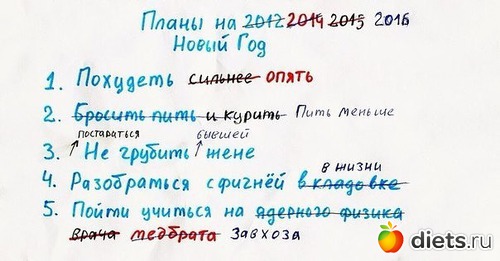 Планы на 2012 2014 2015 2016
Новый Год
1. Похудеть сильнее опять
2. Бросить пить и курить Пить меньше
постараться бывшей
3. Не грубить жене
в жизни
4. Разобраться с фигнёй в кладовке
5. Пойти учиться на ядерного физика
врача медбрата завхоза
diets.ru